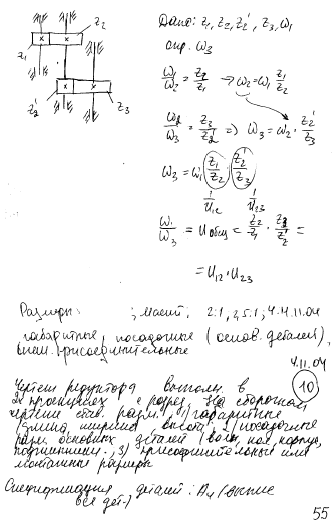 z₂
z₁
z₂'
z₃
Дано: z₁, z₂, z₂', z₃, ω₁
опр. ω₃
ω₁/ω₂ = z₂/z₁ → ω₂ = ω₁ z₁/z₂
ω₂/ω₃ = z₃/z₂' => ω₃ = ω₂ · z₂'/z₃
ω₃ = ω₁ z₁/z₂ · z₂'/z₃
1/u₁₂ 1/u₂₃
ω₁/ω₃ = u общ = z₂/z₁ · z₃/z₂' =
= u₁₂ · u₂₃
Размеры: ; масшт: 2:1, 2,5:1, 4.11.04
габаритные, посадочные (основ. деталей),
присоединительные
4.11.04
10
Чертеж редуктора выполн. в
2х проекциях с разрез. На сборочном
чертеже став. разм.: 1) габаритные
(длина, ширина, высота); 2) посадочные
разм. основных деталей (валы, кол., корпус,
подшипники), 3) присоединительные или
монтажные размеры
Спецификация деталей:
все дет.)
55